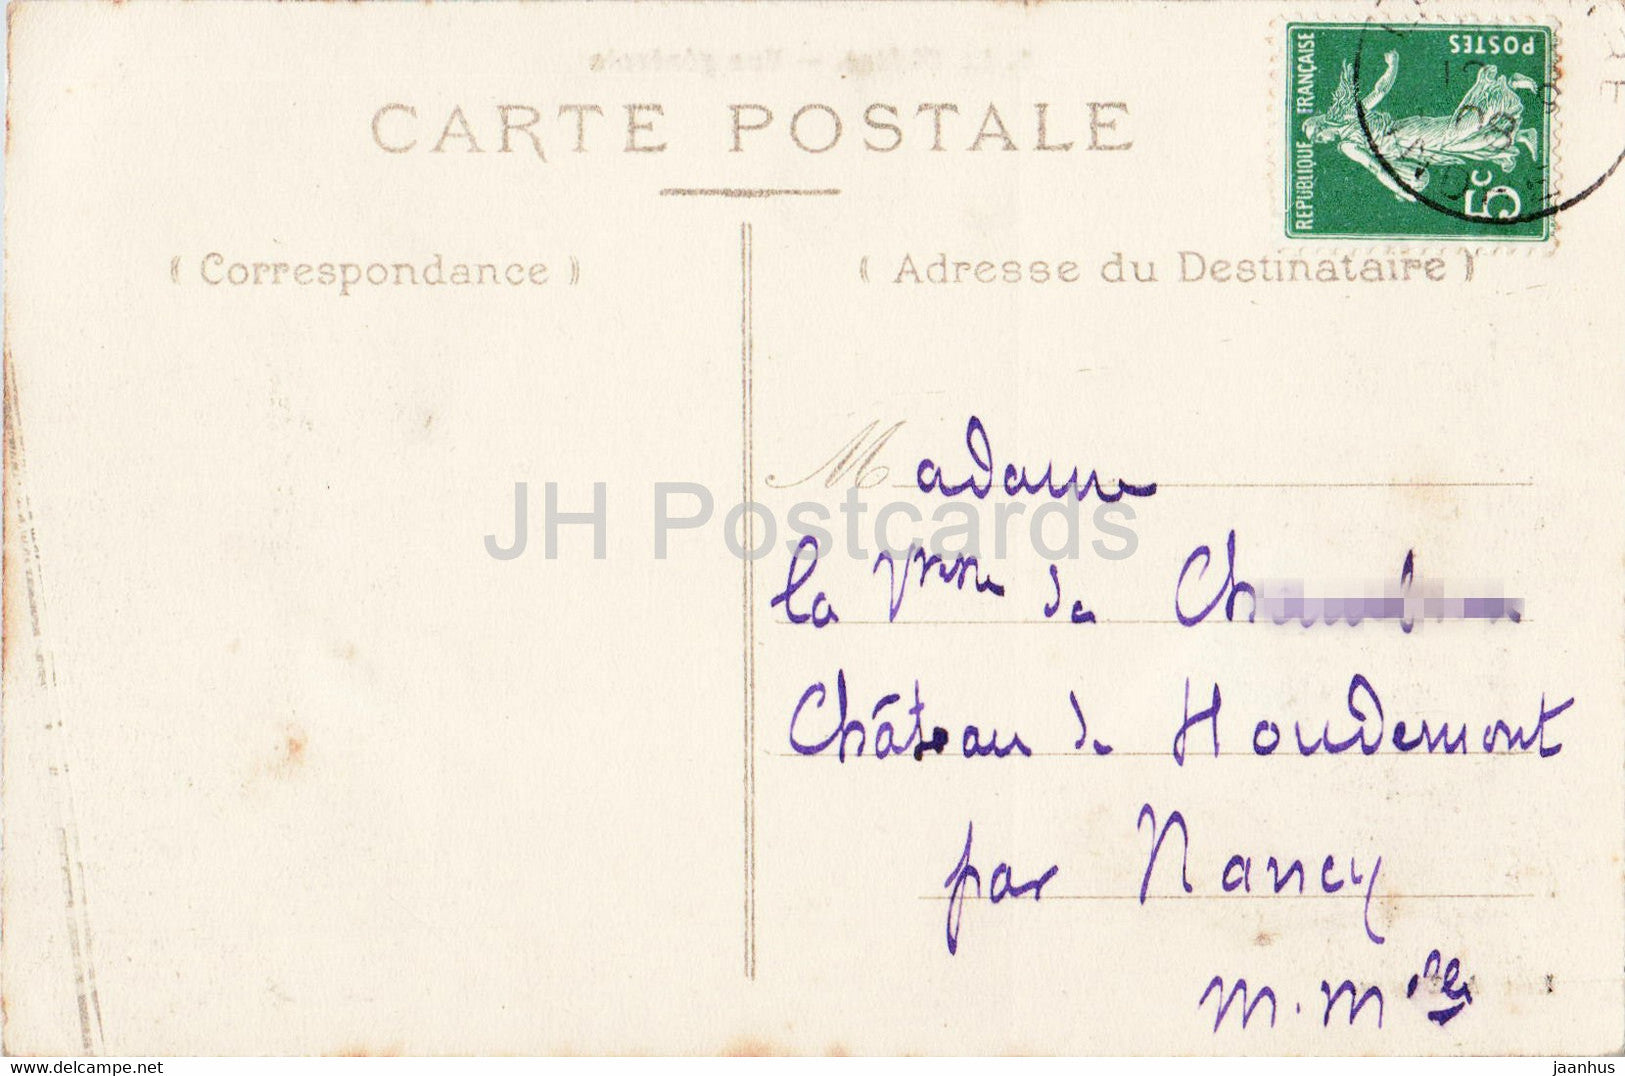 CARTE POSTALE
RÉPUBLIQUE FRANÇAISE
POSTES
5c
( Correspondance )
( Adresse du Destinataire )
Madame
JH Postcards
la Vtesse de
Château de Houdemont
par Nancy
M. Mlle
delcampe.net
jaanhus